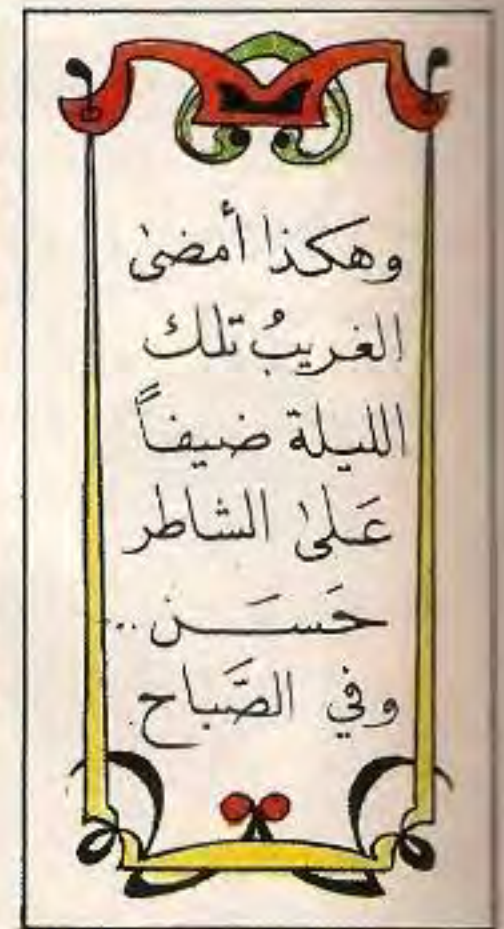 وهكذا أمضىٰ
الغريبُ تلك
الليلة ضيفاً
عَلىٰ الشاطر
حَسَـن ..
وفي الصَّباح